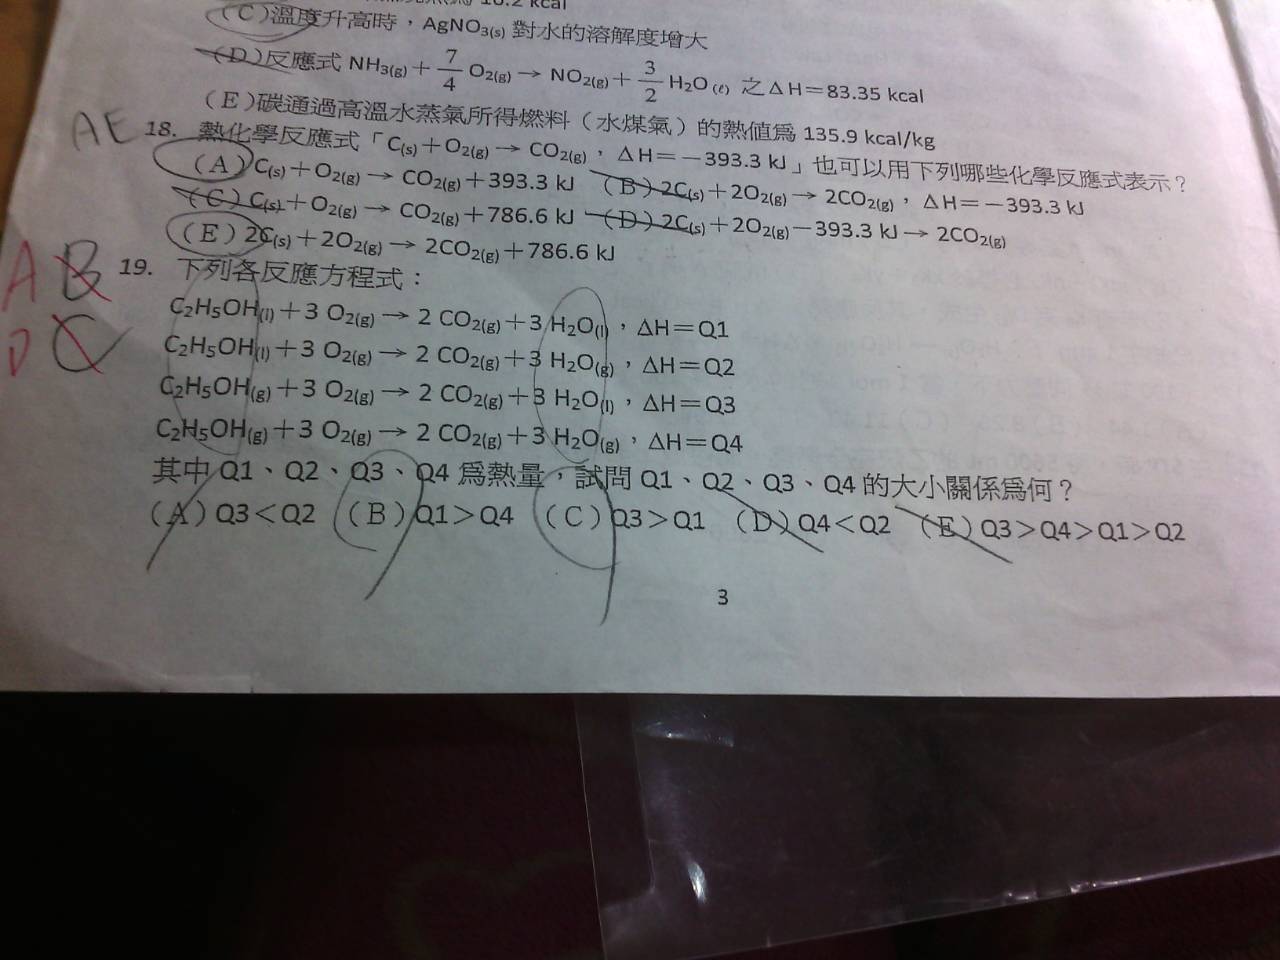 10.2 kcal
(C)溫度升高時，AgNO3(s) 對水的溶解度增大
(D)反應式 NH3(g)＋7/4 O2(g)→ NO2(g)＋3/2 H2O(ℓ) 之△H＝83.35 kcal
(E)碳通過高溫水蒸氣所得燃料（水煤氣）的熱值為 135.9 kcal/kg
AE 18. 熱化學反應式「C(s)＋O2(g)→ CO2(g)，△H＝－393.3 kJ」也可以用下列哪些化學反應式表示？
(A)C(s)＋O2(g)→ CO2(g)＋393.3 kJ (B)2C(s)＋2O2(g)→ 2CO2(g)，△H＝－393.3 kJ
(C)C(s)＋O2(g)→ CO2(g)＋786.6 kJ (D)2C(s)＋2O2(g)－393.3 kJ→ 2CO2(g)
(E)2C(s)＋2O2(g)→ 2CO2(g)＋786.6 kJ
A B 19. 下列各反應方程式：
D C
C2H5OH(l)＋3 O2(g)→ 2 CO2(g)＋3 H2O(l)，△H＝Q1
C2H5OH(l)＋3 O2(g)→ 2 CO2(g)＋3 H2O(g)，△H＝Q2
C2H5OH(g)＋3 O2(g)→ 2 CO2(g)＋3 H2O(l)，△H＝Q3
C2H5OH(g)＋3 O2(g)→ 2 CO2(g)＋3 H2O(g)，△H＝Q4
其中 Q1、Q2、Q3、Q4 為熱量，試問 Q1、Q2、Q3、Q4 的大小關係為何？
(A)Q3＜Q2 (B)Q1＞Q4 (C)Q3＞Q1 (D)Q4＜Q2 (E)Q3＞Q4＞Q1＞Q2
3